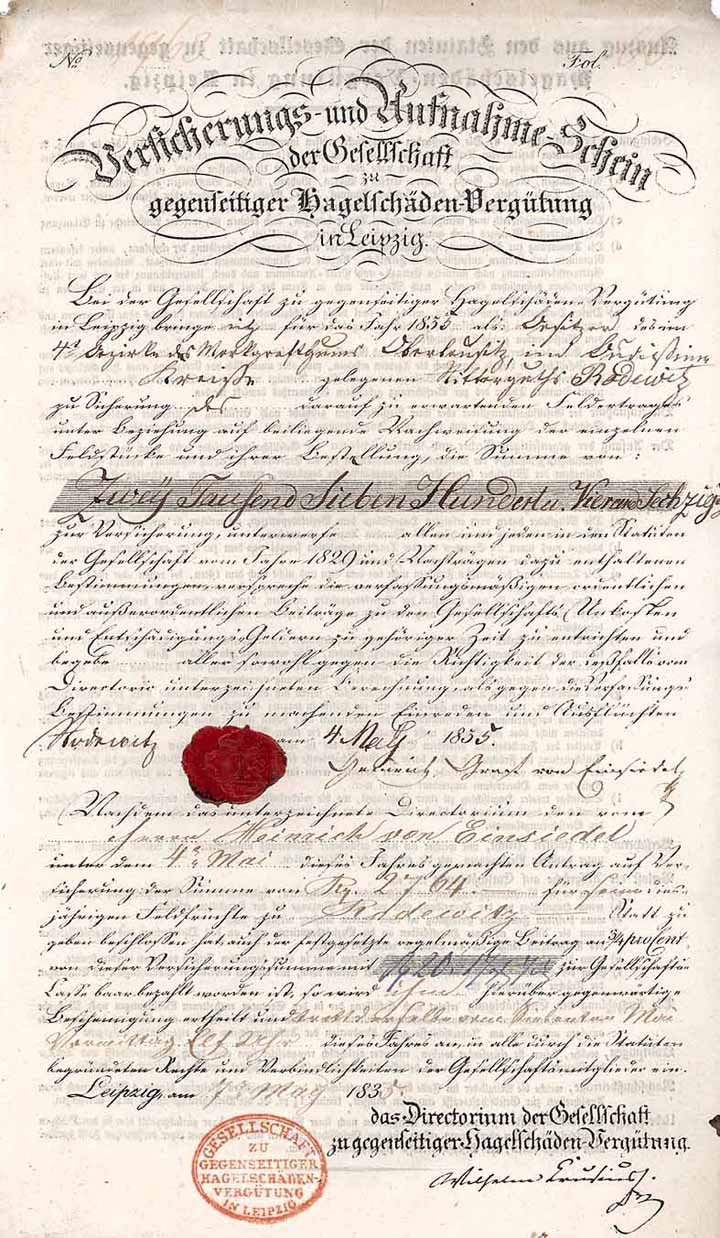 No. Fol.
Versicherungs- und Aufnahme-Schein
der Gesellschaft
zu
gegenseitiger Hagelschäden-Vergütung
in Leipzig.
Bei der Gesellschaft zu gegenseitiger Hagelschäden-Vergütung
in Leipzig bringe ich für das Jahr 1835 als Besitzer des im
4n Bezirke des Markgrafthums Oberlausitz, und Budissiner
Kreise gelegenen Ritterguths Rodewitz
zu Sicherung des darauf zu erwartenden Feldertrages
unter Beziehung auf beiliegende Nachweisung der einzelnen
Feldstücke und ihrer Bestellung, die Summe von:
Zwey Tausend Sieben Hundert u. Vier und Sechzig
zur Versicherung, unterwerfe allen und jeden in den Statuten
der Gesellschaft vom Jahre 1829 und Nachträgen dazu enthaltenen
Bestimmungen, verspreche die verfassungsmäßigen ordentlichen
und außerordentlichen Beiträge zu den Gesellschafts-Unkosten
und Entschädigungs-Geldern zu gehöriger Zeit zu entrichten und
begebe aller sowohl gegen die Richtigkeit der deßfalls vom
Directorio unterzeichneten Berechnung, als gegen die Verfassungs-
Bestimmungen zu machenden Einreden und Ausflüchten
Rodewitz am 4 May 1835.
Heinrich Graf von Einsiedel
Nachdem das unterzeichnete Directorium den vom
Herrn Heinrich von Einsiedel
unter dem 4n Mai dieses Jahres gemachten Antrag auf Ver-
sicherung der Summe von 2764. für seine dies-
jährigen Feldfrüchte zu Rodewitz Statt zu
geben beschlossen hat, auch der festgesetzte regelmäßige Beitrag an 3/4 procent
von dieser Versicherungssumme mit 20. zur Gesellschafts-
Casse baar bezahlt worden ist, so wird ihm hierüber gegenwärtige
Bescheinigung ertheilt und tritt derselbe vom Siebenten Mai
Vormittag Elf Uhr dieses Jahres an, in alle durch die Statuten
begründeten Rechte und Verbindlichkeiten der Gesellschaftsmitglieder ein.
Leipzig, am 7 May 1835
das Directorium der Gesellschaft
zu gegenseitiger Hagelschäden-Vergütung.
Wilhelm Crusius
GESELLSCHAFT
ZU
GEGENSEITIGER
HAGELSCHÄDEN-
VERGÜTUNG
IN LEIPZIG